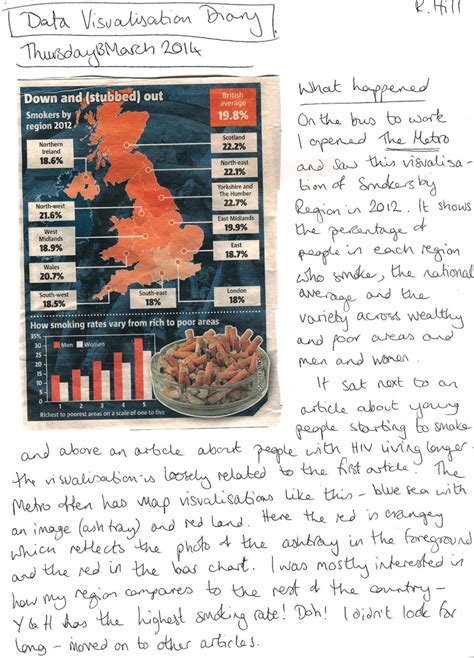 Data Visualisation Diary
R. Hill
Thursday 13 March 2014
Down and (stubbed) out
Smokers by
region 2012
British
average
19.8%
Northern
Ireland
18.6%
Scotland
22.2%
North-east
22.1%
Yorkshire and
The Humber
22.7%
North-west
21.6%
East Midlands
19.9%
West
Midlands
18.9%
East
18.7%
Wales
20.7%
South-west
18.5%
South-east
18%
London
18%
How smoking rates vary from rich to poor areas
35%
30
25
20
15
10
5
0
Men
Women
1 2 3 4 5
Richest to poorest areas on a scale of one to five
What happened
On the bus to work
I opened The Metro
and saw this visualisa-
tion of Smokers by
Region in 2012. It shows
the percentage of
people in each region
who smoke, the national
average and the
variety across wealthy
and poor areas and
men and women.
It sat next to an
article about young
people starting to smoke
and above an article about people with HIV living longer.
The visualisation is loosely related to the first article. The
Metro often has map visualisations like this - blue sea with
an image (ash tray) and red land. Here the red is orangey
which reflects the photo of the ashtray in the foreground
and the red in the bar chart. I was mostly interested in
how my region compares to the rest of the country -
Y & H has the highest smoking rate! Doh! I didn't look for
long - moved on to other articles.